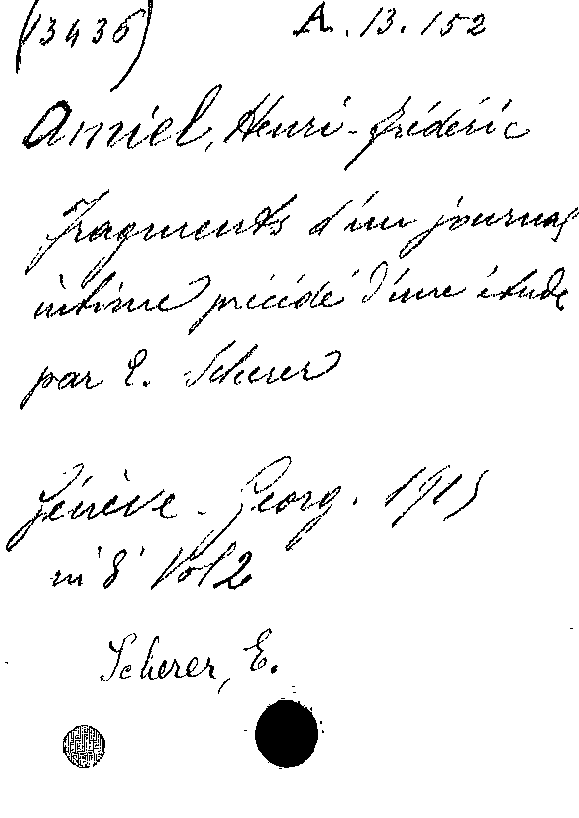 (13436) A.13.152
Amiel, Henri-Frédéric
Fragments d'un journal
intime précédé d'une étude
par E. Scherer
Génève - Georg. 1915
in 8° Vol 2
Scherer, E.